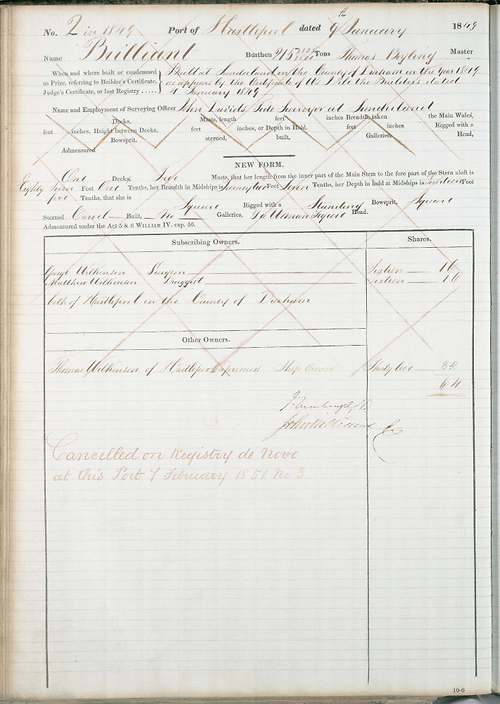 No. 2 in 1849 Port of Hartlepool dated 9th January 1849
Name Brilliant Burthen 215 Tons Thomas Master
When and where built or condemned as Prize, referring to Builder's Certificate, Judge's Certificate, or last Registry
Built at Sunderland in the County of Durham in the Year 1849
as appears by the Certificate of the Builders dated
4 January 1849
Name and Employment of Surveying Officer John Tide Surveyor at Sunderland
Decks, Masts, length feet inches Breadth taken the Main Wales,
feet inches. Height between Decks, feet inches, or Depth in Hold, feet inches Rigged with a
Bowsprit, sterned, built, Galleries, Head,
Admeasured
NEW FORM.
One Decks, Two Masts, that her length from the inner part of the Main Stem to the fore part of the Stern aloft is
Eighty three Feet One Tenths, her Breadth in Midships is twenty two Feet Seven Tenths, her Depth in hold at Midships is Feet
five Tenths, that she is Square Rigged with a Standing Bowsprit, Square
Sterned Carvel Built, No Galleries, Woman figure Head.
Admeasured under the Act 5 & 6 WILLIAM IV. cap. 56.
Subscribing Owners. Shares.
George Wilkinson Surgeon Sixteen 16
Matthew Wilkinson Druggist Sixteen 16
both of Hartlepool in the County of Durham
Other Owners.
Thomas Wilkinson of Hartlepool aforesaid Ship Owner Thirty two 32
64
Cancelled on Registry de Novo
at this Port 7 February 1851 No 3
10-6